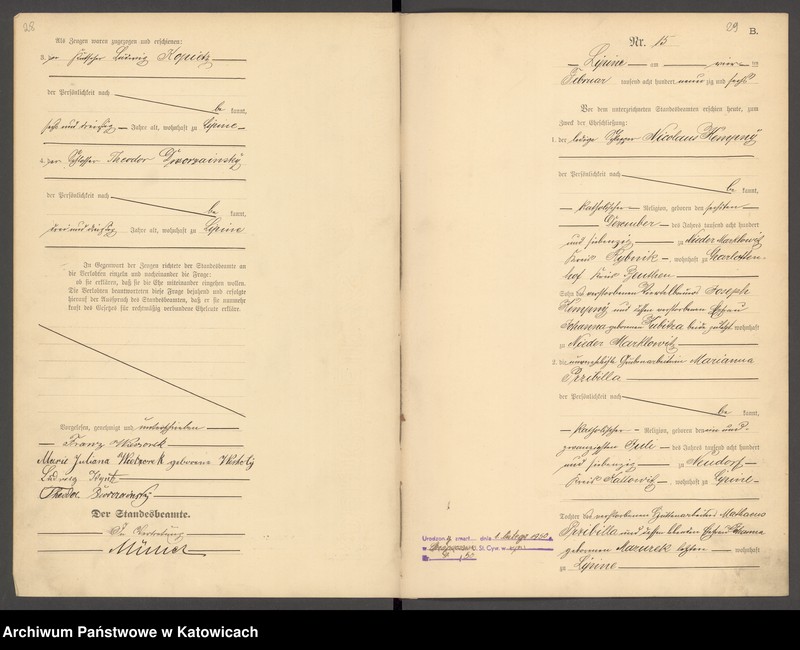 28
Als Zeugen waren zugezogen und erschienen:
3. der Kutscher Ludwig Kopietz
der Persönlichkeit nach
be kannt,
sechs und dreißig Jahre alt, wohnhaft zu Lipine
4. der Schlosser Theodor
der Persönlichkeit nach
be kannt,
drei und dreißig Jahre alt, wohnhaft zu Lipine
In Gegenwart der Zeugen richtete der Standesbeamte an
die Verlobten einzeln und nacheinander die Frage:
ob sie erklären, daß sie die Ehe miteinander eingehen wollen.
Die Verlobten beantworteten diese Frage bejahend und erfolgte
hierauf der Ausspruch des Standesbeamten, daß er sie nunmehr
kraft des Gesetzes für rechtmäßig verbundene Eheleute erkläre.
Vorgelesen, genehmigt und unterschrieben
Franz
Marie Juliana geborene
Ludwig
Theodor
Der Standesbeamte.
In Vertretung
29
B.
Nr. 15
Lipine am vier ten
Februar tausend acht hundert neun zig und sechs
Vor dem unterzeichneten Standesbeamten erschien heute, zum
Zweck der Eheschließung:
1. der ledige Nicolaus Kempny
der Persönlichkeit nach
be kannt,
katholischer Religion, geboren den sechsten
Dezember des Jahres tausend acht hundert
und siebenzig zu Nieder Marklowitz
Kreis Rybnik, wohnhaft zu Charlotten-
hof Kreis Beuthen
Sohn des verstorbenen Joseph
Kempny und dessen verstorbenen Ehefrau
Johanna geborenen beide zuletzt wohnhaft
zu Nieder Marklowitz
2. die unverehelichte Grubenarbeiterin Marianna
Przibilla
der Persönlichkeit nach
be kannt,
katholischer Religion, geboren den ein und
zwanzigsten Juli des Jahres tausend acht hundert
und siebenzig zu Neudorf
Kreis Kattowitz, wohnhaft zu Lipine
Tochter des verstorbenen Hüttenarbeiters Mathaeus
Przibilla und dessen Ehefrau Johanna
geborenen Mazurek wohnhaft
zu Lipine
Archiwum Państwowe w Katowicach